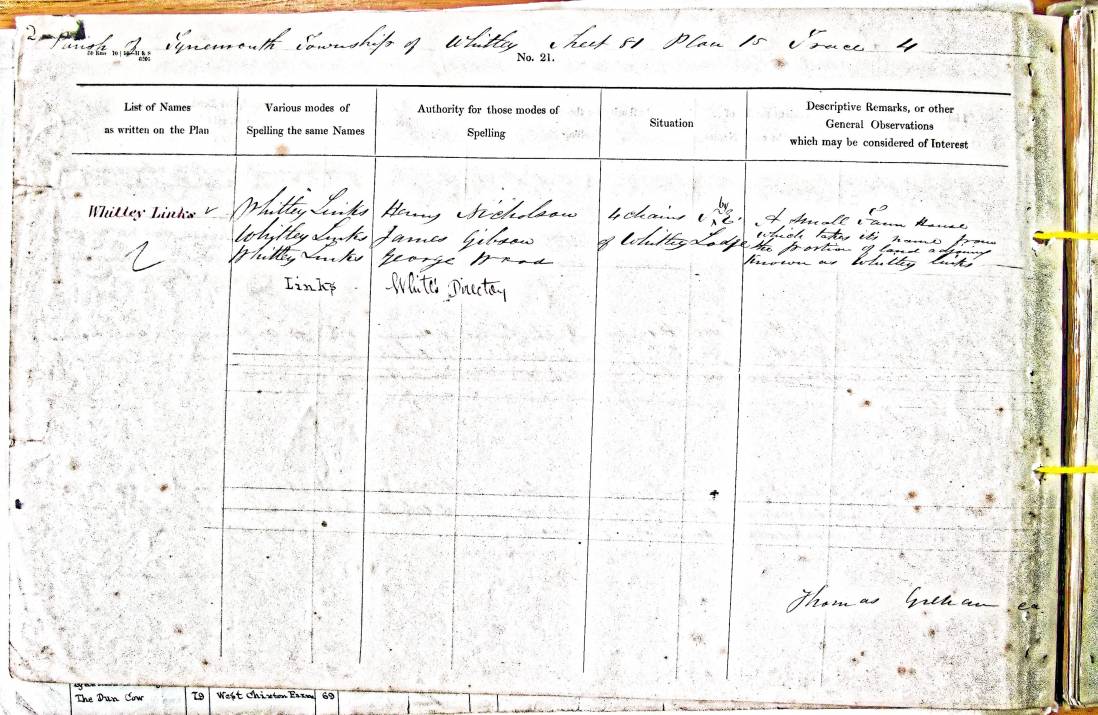 2
Parish of Tynemouth Township of Whitley Sheet 81 Plan 15 Trace 4
No. 21.
List of Names
as written on the Plan
Various modes of
Spelling the same Names
Authority for those modes of
Spelling
Situation
Descriptive Remarks, or other
General Observations
which may be considered of Interest
Whitley Links
Whitley Links
Whitley Links
Whitley Links
Links
Henry Nicholson
James Gibson
George Wood
White's Directory
by
4 chains N.E.
of Whitley Lodge
A small Farm House
which takes its name from
the portion of land adjoining
known as Whitley links
Thomas Graham
The Dun Cow 79 West Chirton Farm 69